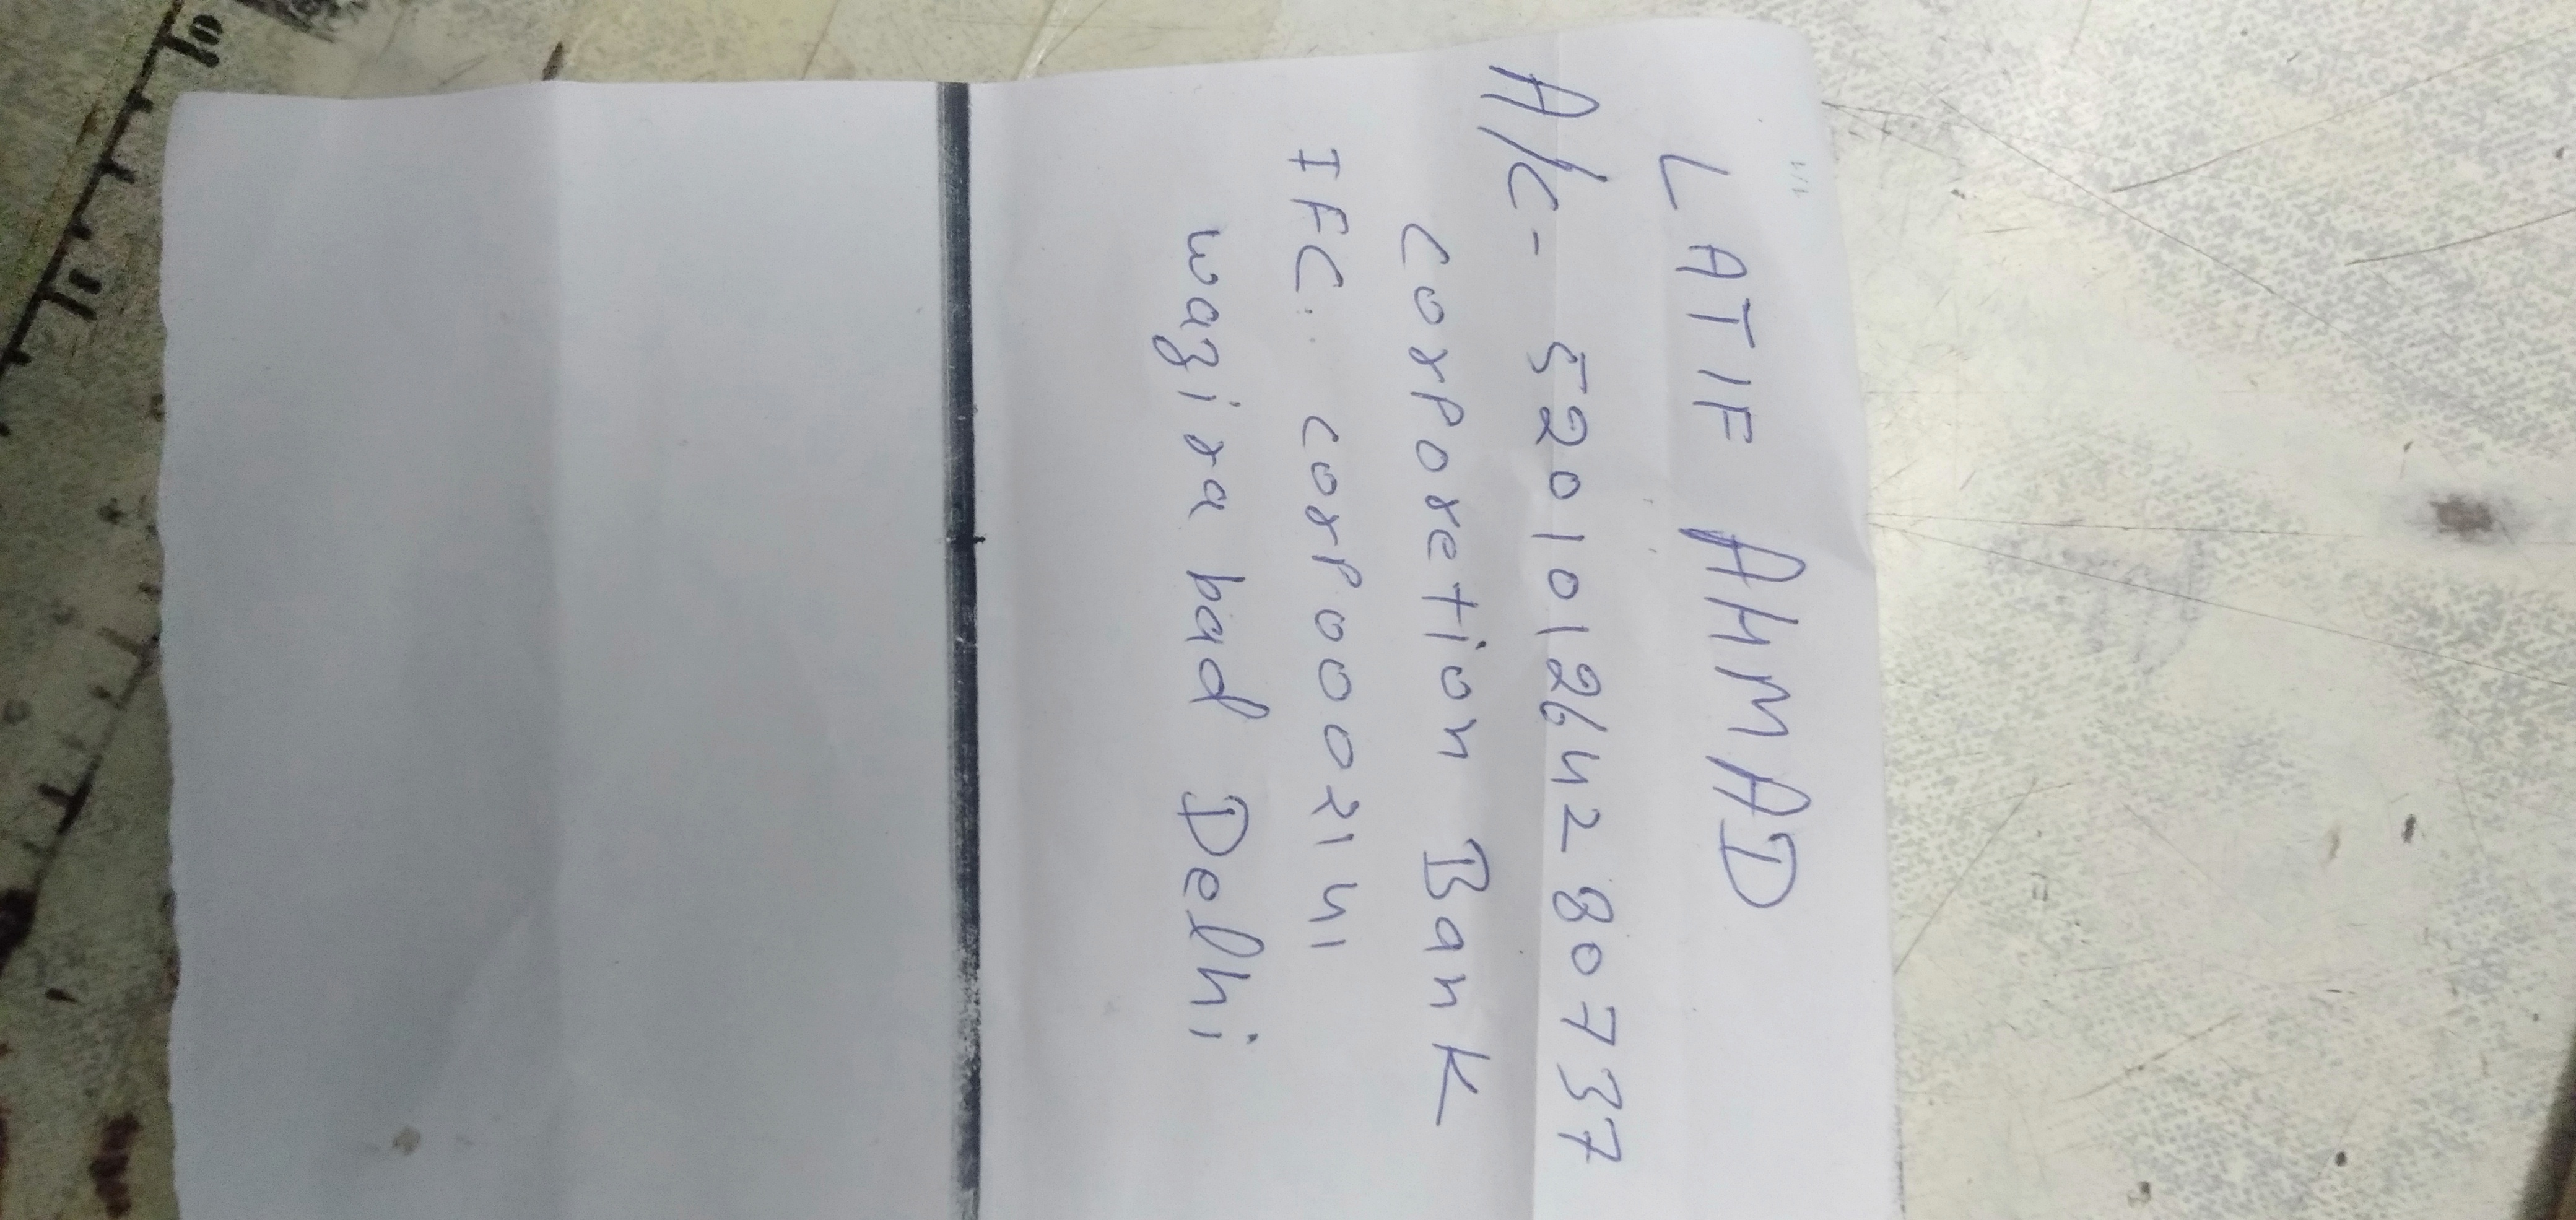 LATIF AHMAD
A/C- 520101264280737
CorPoretion Bank
IFC. CorP00002141
wazira bad Delhi
10
11